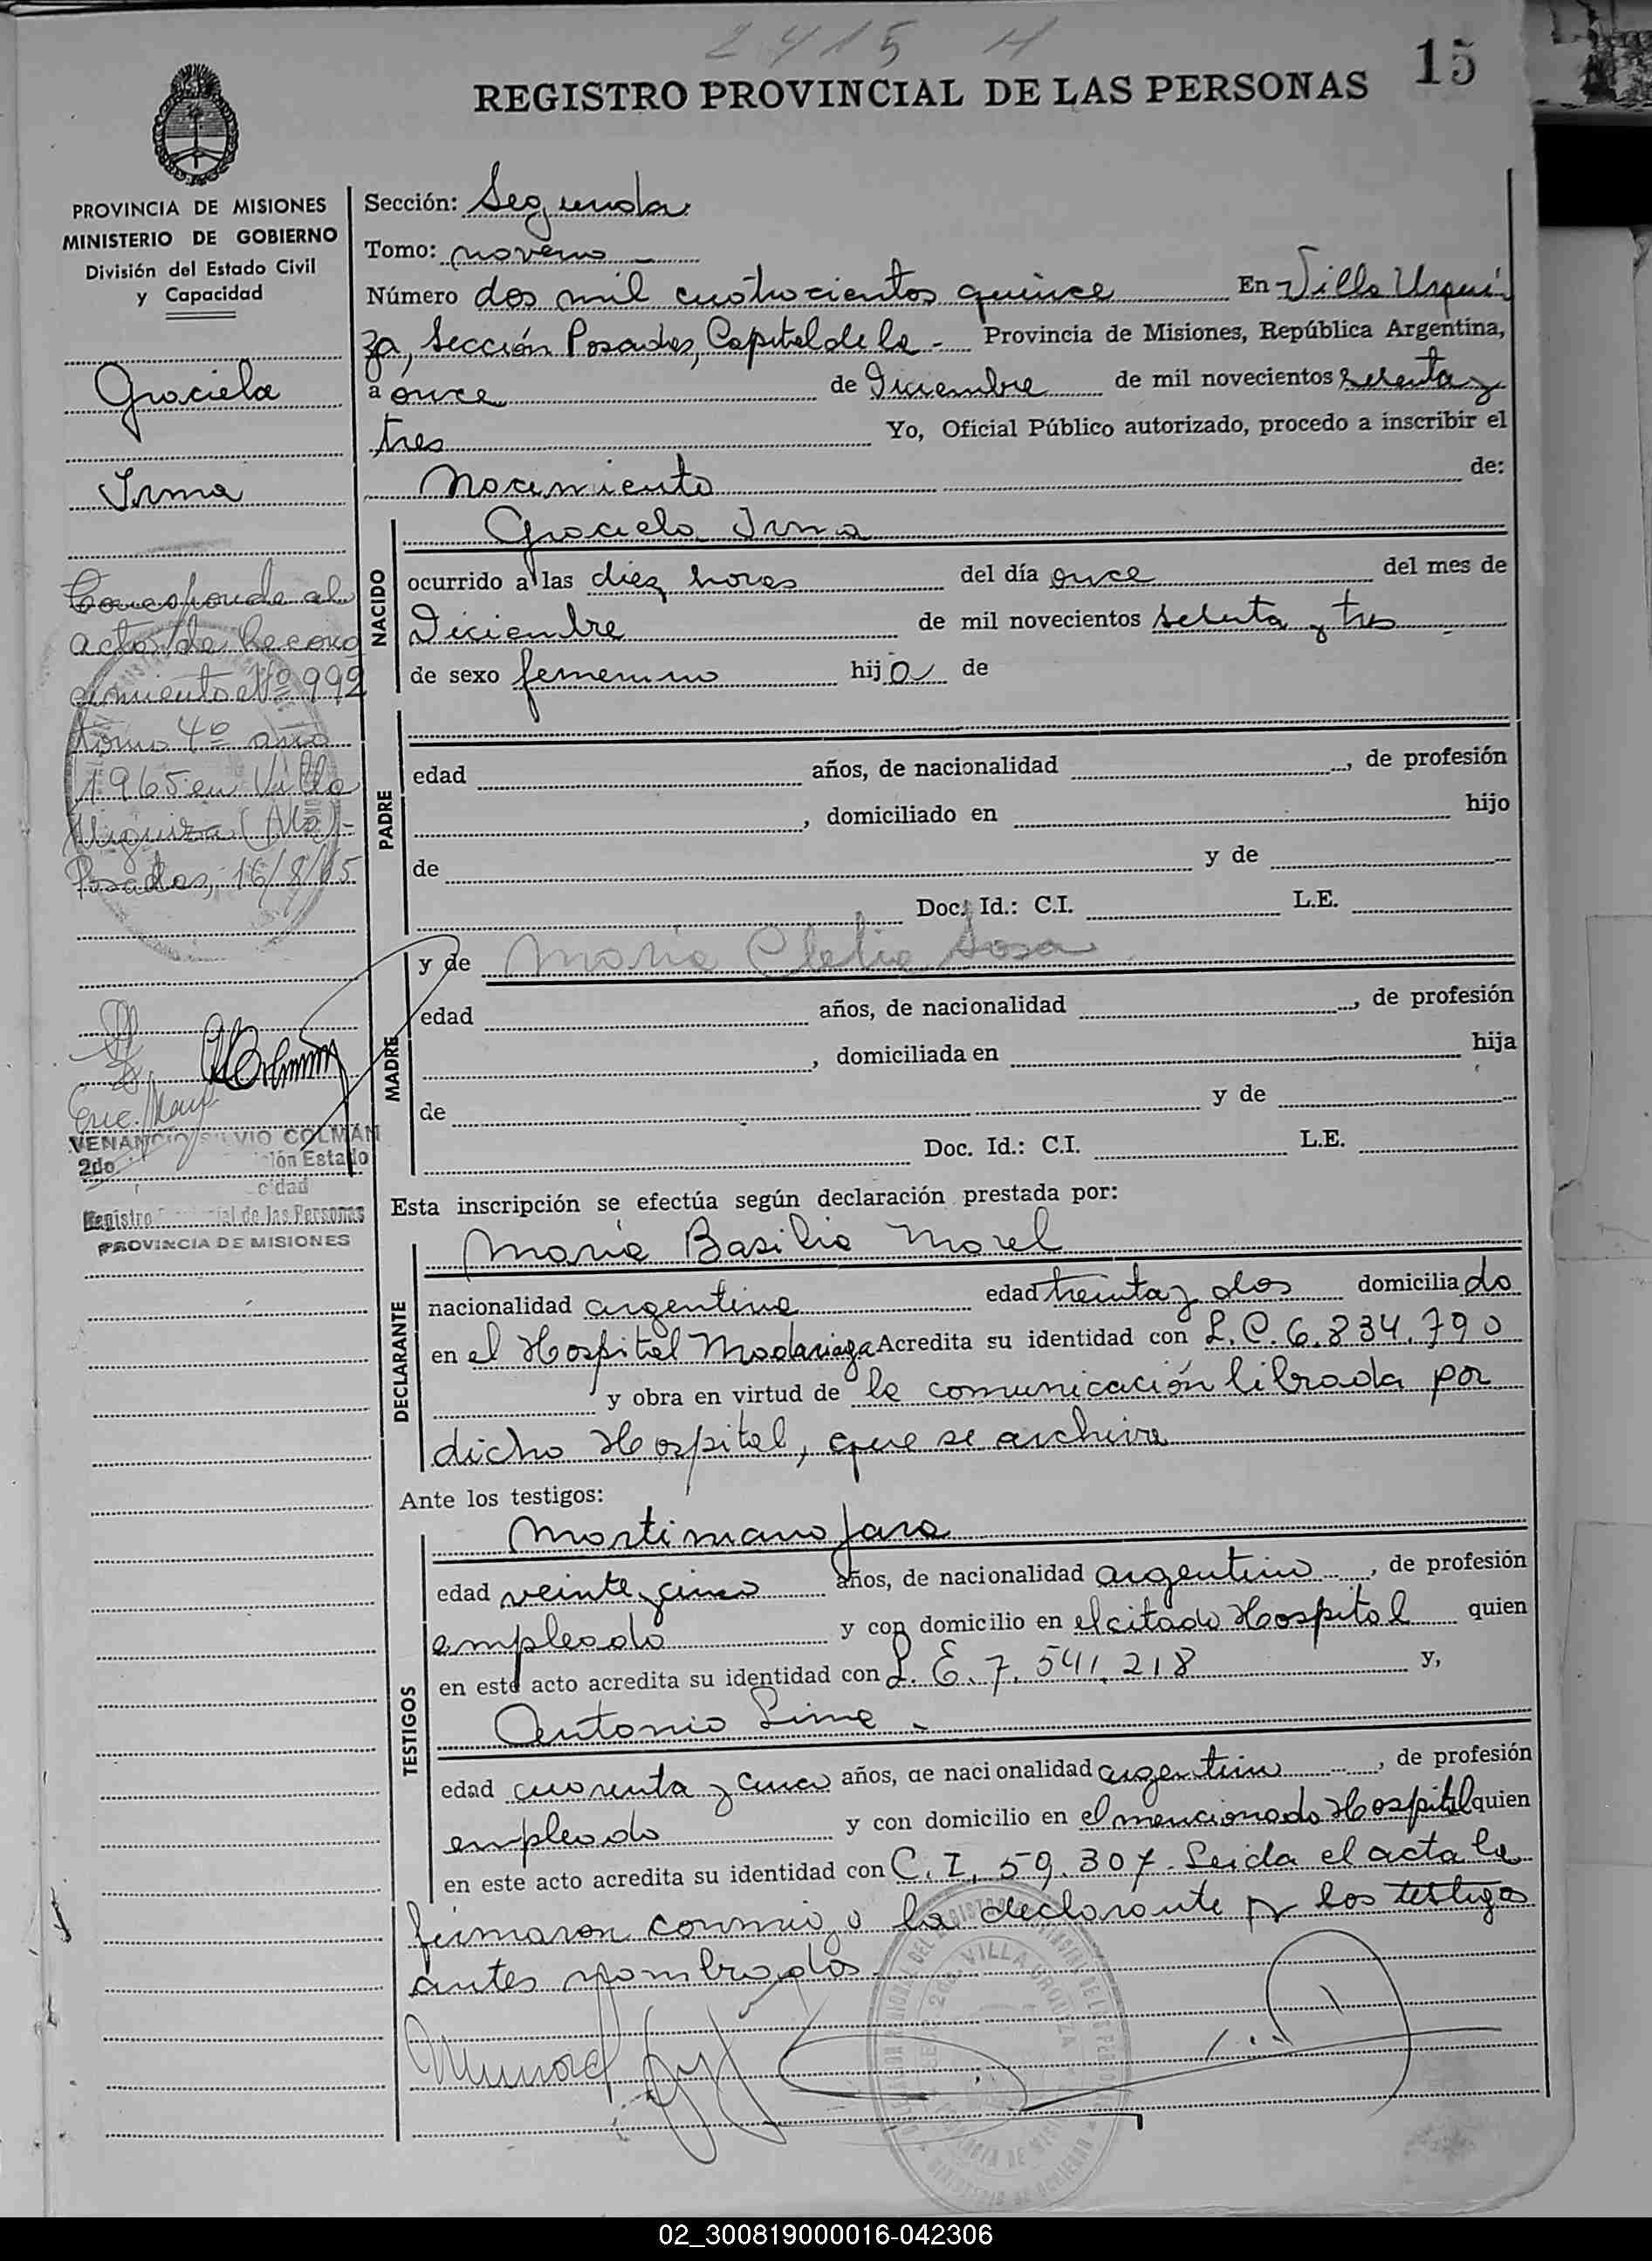 2415 H
15
REGISTRO PROVINCIAL DE LAS PERSONAS
PROVINCIA DE MISIONES
MINISTERIO DE GOBIERNO
División del Estado Civil
y Capacidad
Graciela
Irma
Corresponde al
acto de Recono
cimiento Nº 992
tomo 4º año
1965 en Villa
Urquiza (Ms)-
Posadas, 16/8/65
VENANCIO SILVIO COLMAN
2do.
Registro de las Personas
PROVINCIA DE MISIONES
Sección: Segunda
Tomo: noveno
Número dos mil cuatrocientos quince En Villa Urqui
za, Sección Posadas, Capital de la - Provincia de Misiones, República Argentina,
a once de Diciembre de mil novecientos setenta y
tres Yo, Oficial Público autorizado, procedo a inscribir el
Nacimiento de:
NACIDO
Graciela Irma
ocurrido a las diez horas del día once del mes de
Diciembre de mil novecientos setenta y tres
de sexo femenino hija de
PADRE
edad años, de nacionalidad , de profesión
, domiciliado en hijo
de y de
Doc. Id.: C.I. L.E.
MADRE
y de Maria Clelia Sosa
edad años, de nacionalidad , de profesión
, domiciliada en hija
de y de
Doc. Id.: C.I. L.E.
Esta inscripción se efectúa según declaración prestada por:
DECLARANTE
Maria Basilia Morel
nacionalidad argentina edad treinta y dos domiciliado
en el Hospital Madariaga Acredita su identidad con L.C. 6.834.790
y obra en virtud de la comunicación librada por
dicho Hospital, que se archiva
Ante los testigos:
TESTIGOS
Martimiano Jara
edad veinte y cinco años, de nacionalidad argentino , de profesión
empleado y con domicilio en el citado Hospital quien
en este acto acredita su identidad con L.E. 7.541.218 y,
Antonio Lima -
edad cuarenta y cinco años, de nacionalidad argentino , de profesión
empleado y con domicilio en el mencionado Hospital quien
en este acto acredita su identidad con C.I. 59.307. Leida el acta la
firmaron conmigo la declarante y los testigos
antes nombrados.
VILLA URQUIZA
02_300819000016-042306